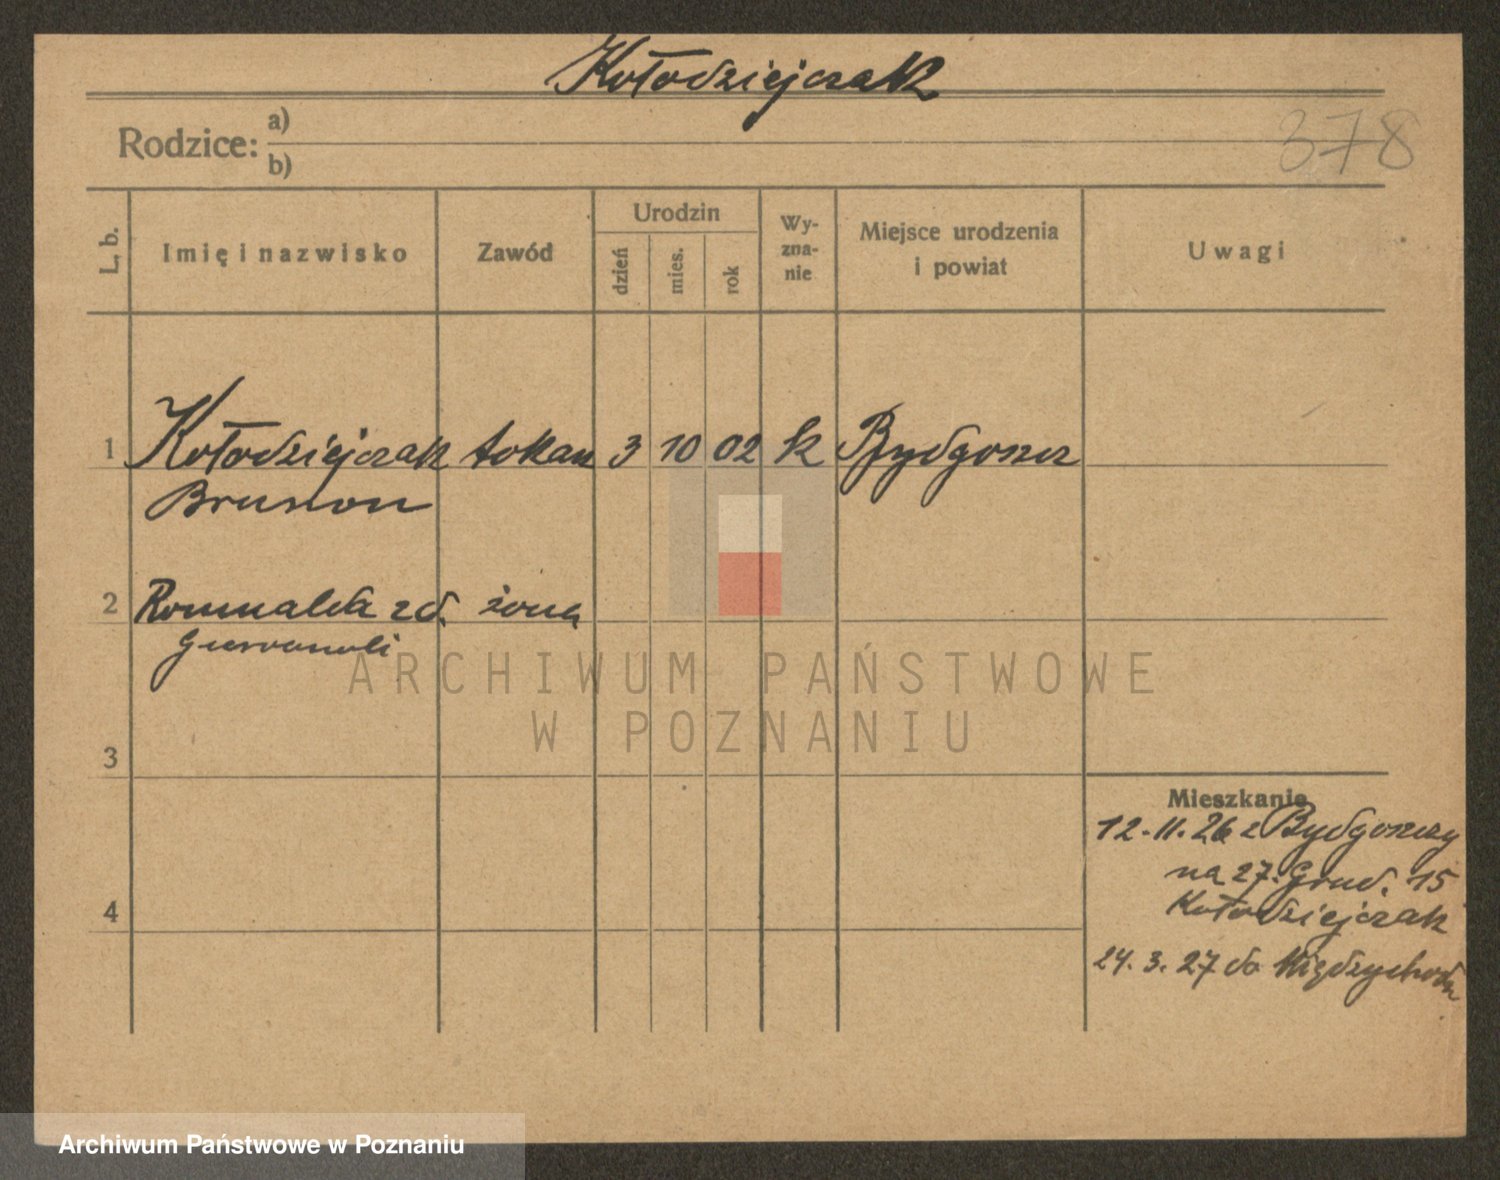 Kołodziejczak
378
Rodzice: a)
b)
L. b.
Imię i nazwisko
Zawód
Urodzin
dzień
mies.
rok
Wy-
zna-
nie
Miejsce urodzenia
i powiat
Uwagi
1 Kołodziejczak tokarz 3 10 02 k Bydgoszcz
Brunon
2 Romualda zd. żona
3
4
Mieszkanie
12.11.26 z Bydgoszczy
na 27. Grud. 15
Kołodziejczak
24.3.27 do Międzychodu
ARCHIWUM PAŃSTWOWE
W POZNANIU
Archiwum Państwowe w Poznaniu